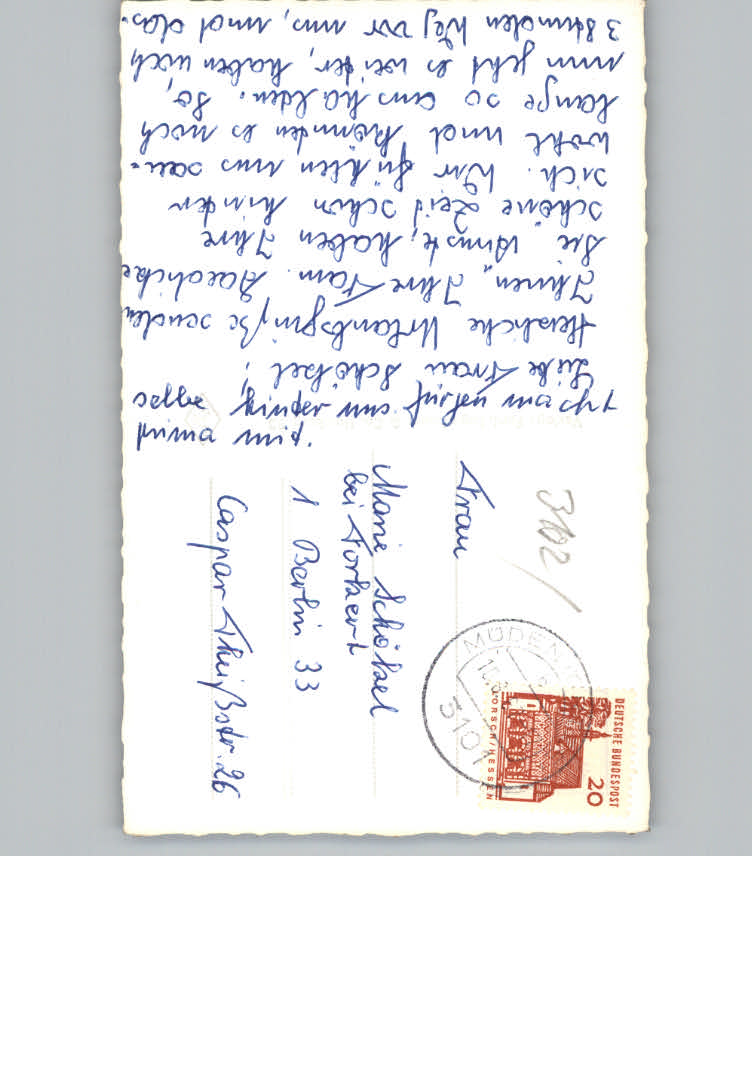 Liebe Frau Schötzel!
Herzliche Urlaubsgrüße senden
Ihnen, Ihre Fam. Baedicke
Sie Ärmste, haben Ihre
schöne Zeit schon hinter
sich. Wir fühlen uns sau-
wohl und könnten es noch
lange so aushalten. So,
nun geht es weiter, haben noch
3 Stunden Weg vor uns, und das.
Frau
Marie Schötzel
bei Forkert
1 Berlin 33
Caspar Theyßstr. 26
3102/
MÜDEN
3101
DEUTSCHE BUNDESPOST
20
LORSCH/HESSEN